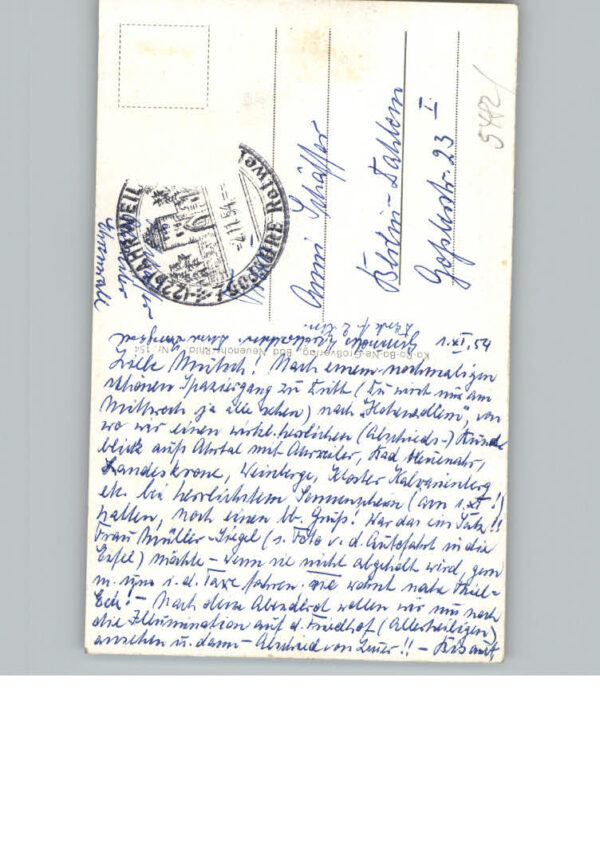 5482/
Anni Schäffer
Berlin-Dahlem
Goßlerstr. 23 I
AHRWEILER
1.XI.54
Ko-Bo-Ba-Ne-Großverlag, Bad Neuenahr/Rhld Nr. 154
Liebe Mutsch! Nach einem nochmaligen
schönen Spaziergang zu Dritt (Du wirst uns am
Mittwoch ja alle sehen) nach "Hohenzollern", von
wo wir einen wirkl. herrlichen (Abschieds-) Rund-
blick aufs Ahrtal mit Ahrweiler, Bad Neuenahr,
Landeskrone, Weinberge, Kloster Kalvarienberg
etc. bei herrlichstem Sonnenschein (am 1.XI.!)
hatten, noch einen lb. Gruß! War das ein Satz!!
Frau Müller-Siegel (s. Foto v. d. Autofahrt in die
Eifel) möchte - wenn sie nicht abgeholt wird, gern
m. uns i. d. Taxe fahren. Sie wohnt nahe Thiel-
Eck! - Nach dem Abendbrot wollen wir nur noch
die Illumination auf d. Friedhof (Allerheiligen)
ansehen u. dann - Abschied von